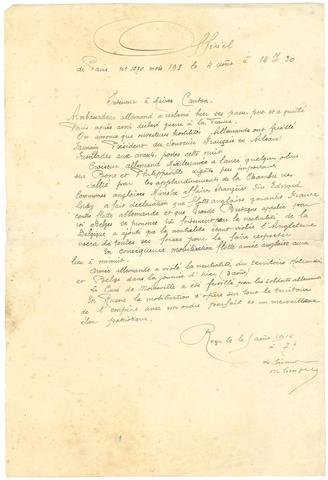 Officiel
de Paris nº 1070 mots 193 le 4 août à 14 h 30
Intérieur à Maires Canton.
Ambassadeur allemand a réclamé hier ses passeports et a quitté
Paris après avoir déclaré guerre à la France
On annonce que ouvertures hostilités Allemands ont fusillé
Samain Président du Souvenir Français en Alsace
Fusillades aux avant postes cette nuit
Croiseur allemand Méditerranée a lancé quelques obus
sur Bone et Philippeville dégâts peu importants
Salué par les applaudissements de la Chambre des
Communes anglaises Ministre affaires étrangères Sir Edward
Grey a fait déclaration que flotte anglaise garantit France
contre flotte allemande et que Grande Bretagne appelée par
roi Belges se prononce fortement sur la neutralité de la
Belgique a ajouté que la neutralité étant violée l'Angleterre
usera de toutes ses forces pour la faire respecter
En conséquence mobilisation flotte armée anglaise aura
lieu à minuit.
Armée allemande a violé la neutralité du territoire Hollandais
et Belge dans la journée d'hier (3 août)
Le Curé de Moineville a été fusillé par les soldats allemands
En Russie la mobilisation s'opère sur tout le territoire
de l'empire avec un ordre parfait et un merveilleux
élan patriotique.
Reçu le 5 août 1914
à 7 h